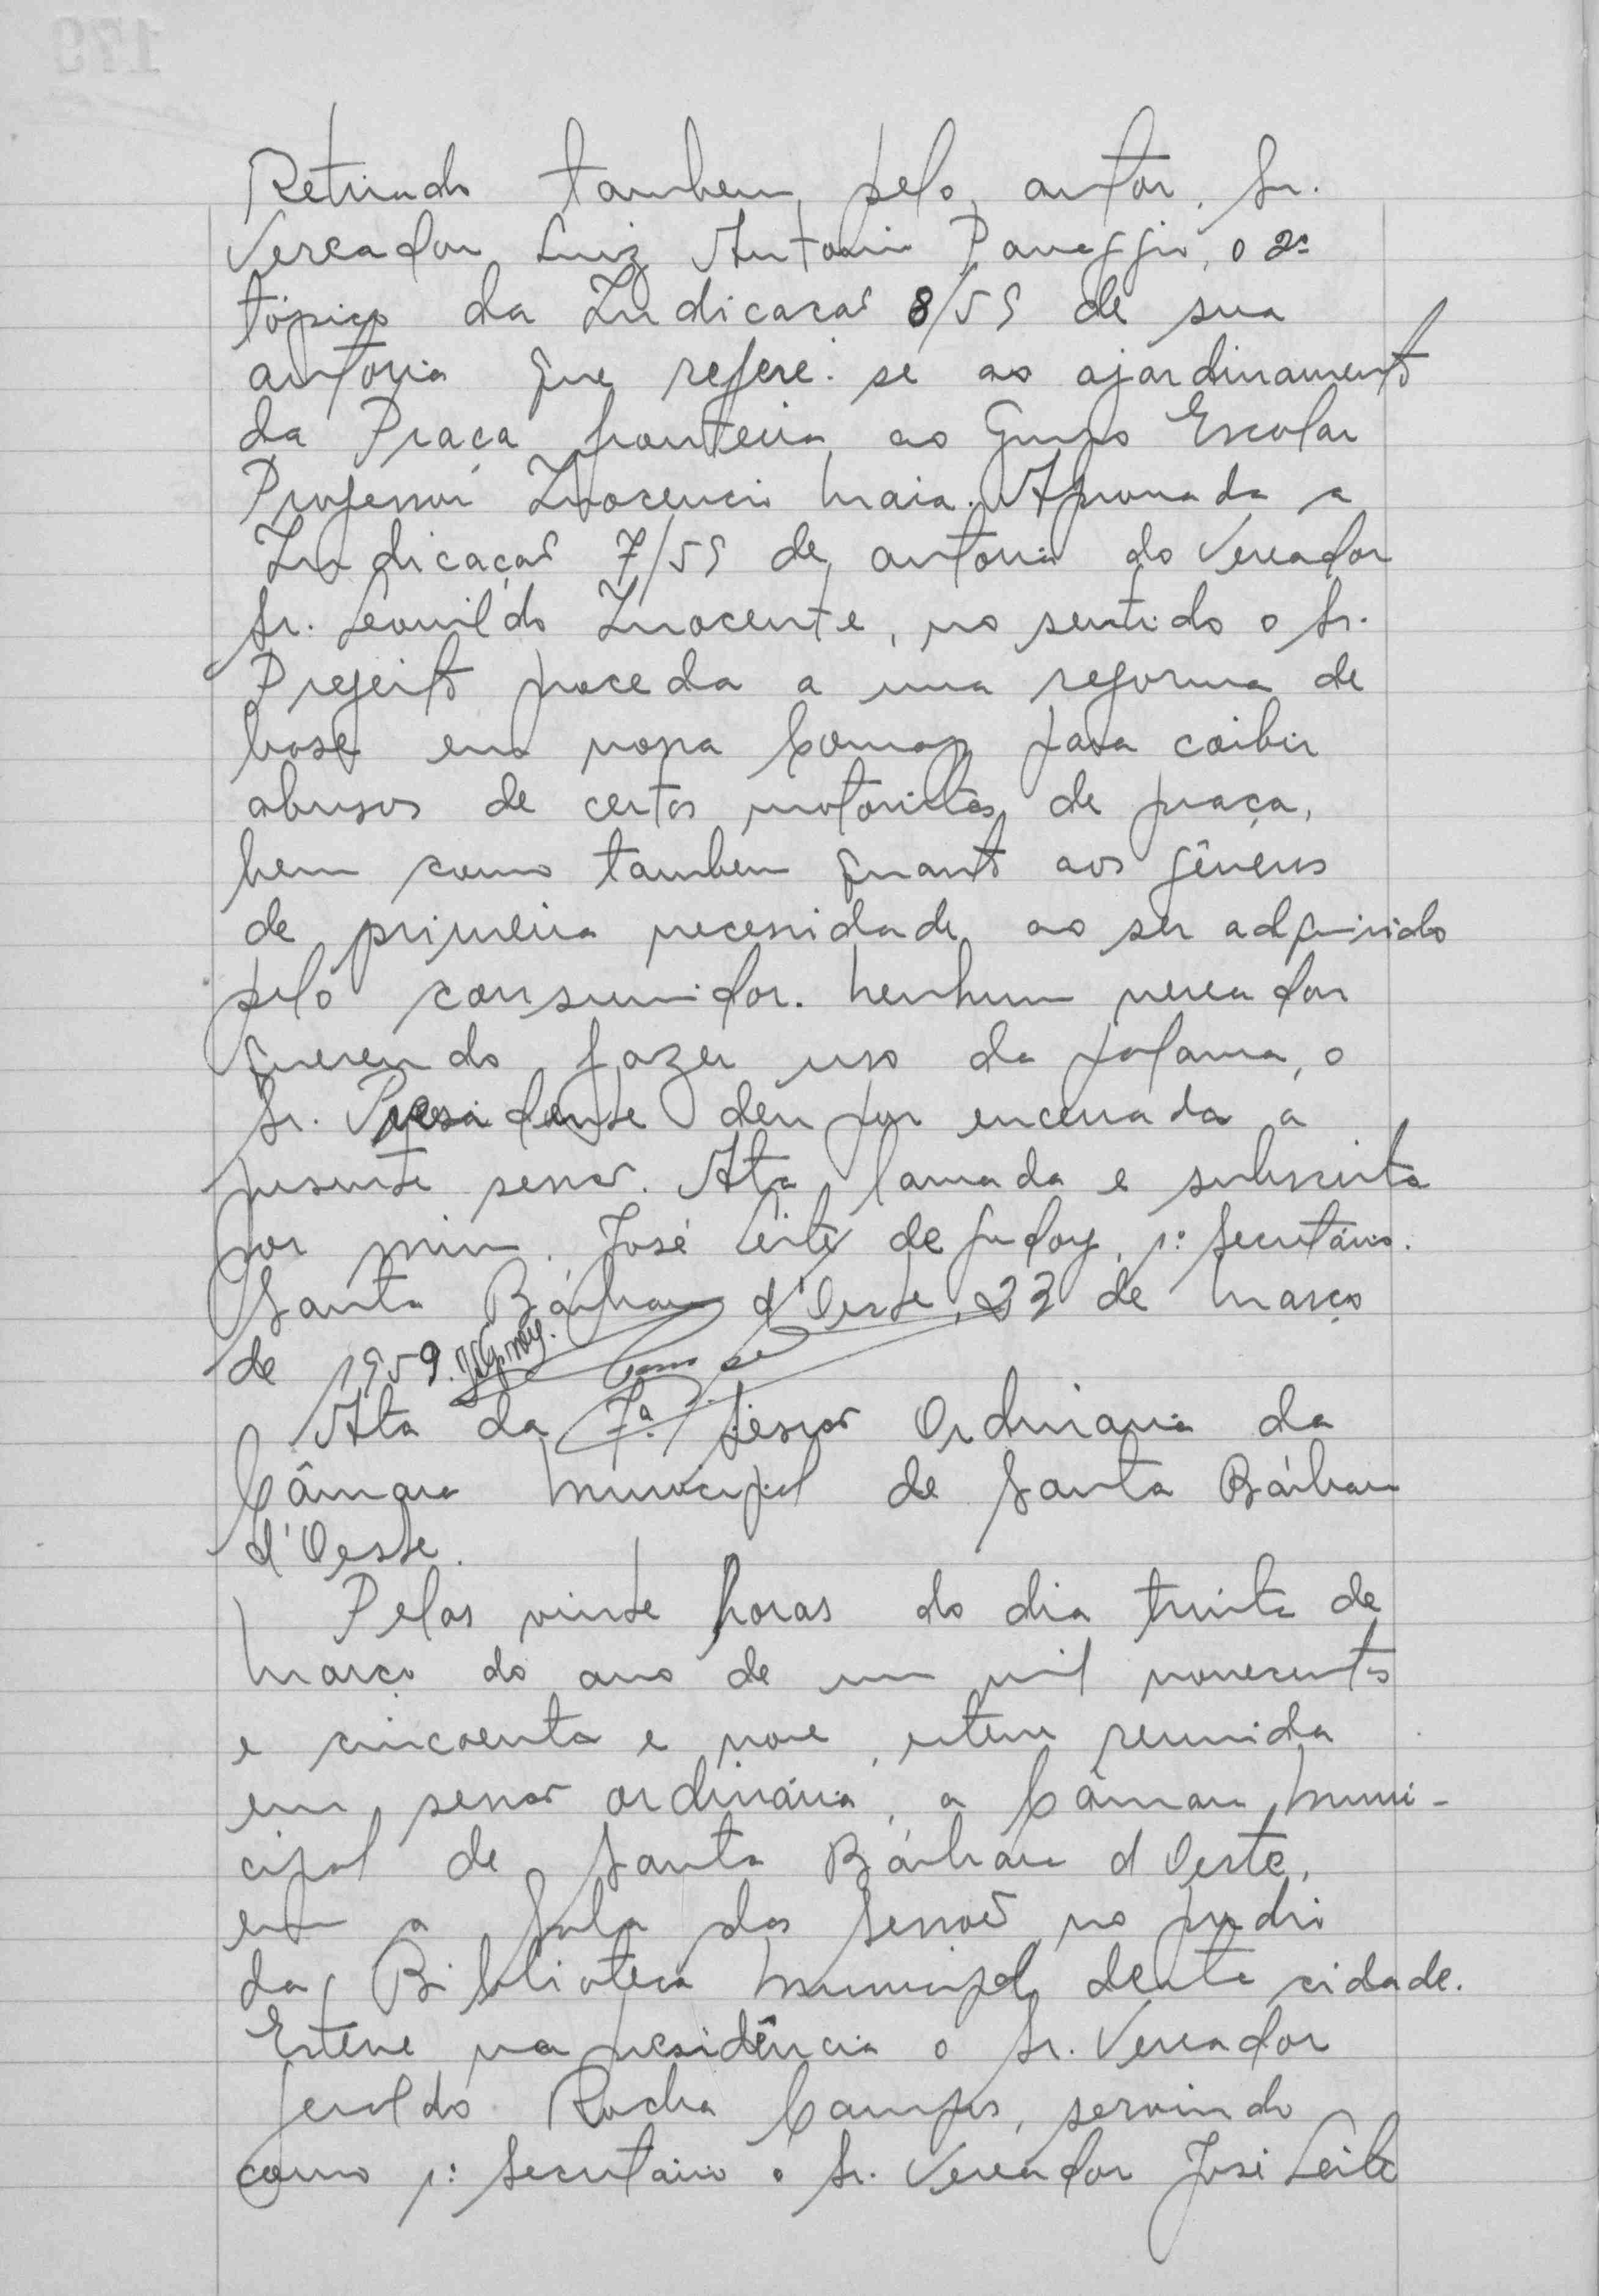 Retirado tambem, pelo autor, Sr.
Vereador Luiz Antonio Panaggio, o 2º
tópico da Indicacão 8/59 de sua
autoria que refere-se ao ajardinamento
da Praça fronteira ao Grupo Escolar
Professor Inocencio Maia. Aprovada a
Indicação 7/59 de autoria do Vereador
Sr. Leonildo Inocente, no sentido o Sr.
Prefeito proceda a uma reforma de
base em nossa Comap para coibir
abusos de certos motoristas de praça,
bem como tambem quanto aos gêneros
de primeira necessidade ao ser adquirido
pelo consumidor. Nenhum vereador
querendo fazer uso da palavra, o
Sr. Presidente deu por encerrada a
presente sessão. Ata lavrada e subscrita
por mim, José Leite de Godoy, 1º Secretário.
Santa Bárbara d'Oeste, 23 de Março
de 1959.
Ata da 7ª Sessão Ordinaria da
Câmara Municipal de Santa Bárbara
d'Oeste.
Pelas vinte horas do dia trinta de
Março do ano de um mil novecentos
e cincoenta e nove, esteve reunida
em sessão ordinária, a Câmara Muni-
cipal de Santa Bárbara d'Oeste,
em a Sala das Sessões no predio
da Biblioteca Municipal desta cidade.
Esteve na presidência o Sr. Vereador
Geraldo Rocha Campos, servindo
como 1º Secretário o Sr. Vereador José Leite